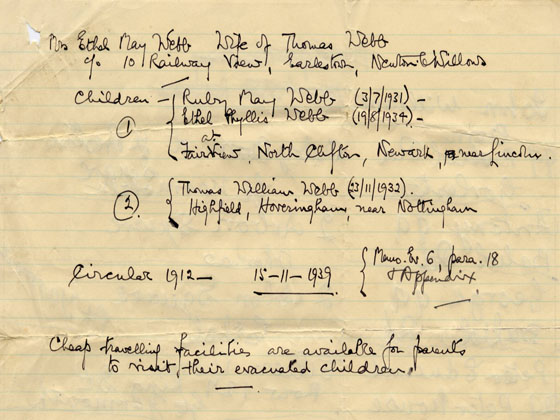 Mrs Ethel May Webb Wife of Thomas Webb
c/o 10 Railway View, Earlestown, Newton le Willows
Children - Ruby May Webb (3/7/1931) -
Ethel Phyllis Webb (19/8/1934) -
① at
Fairview, North Clifton, Newark, near Lincoln.
② Thomas William Webb (23/11/1932).
Highfield, Hoveringham, near Nottingham
Circular 1912 - 15-11-1939 Memo. Ev. 6, para. 18
& Appendix
Cheap travelling facilities are available for parents
to visit their evacuated children.